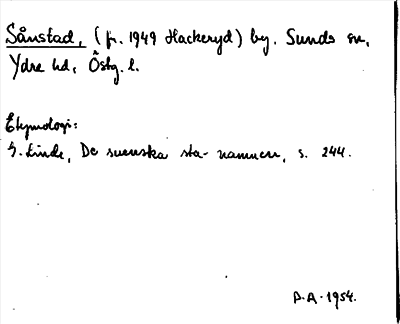 Sånstad, (fr. 1949 Hackeryd) by. Sunds sn,
Ydre hd, Östg. l.
Etymologi:
G. Linde, De svenska sta-namnen, s. 244.
P.A. 1954.